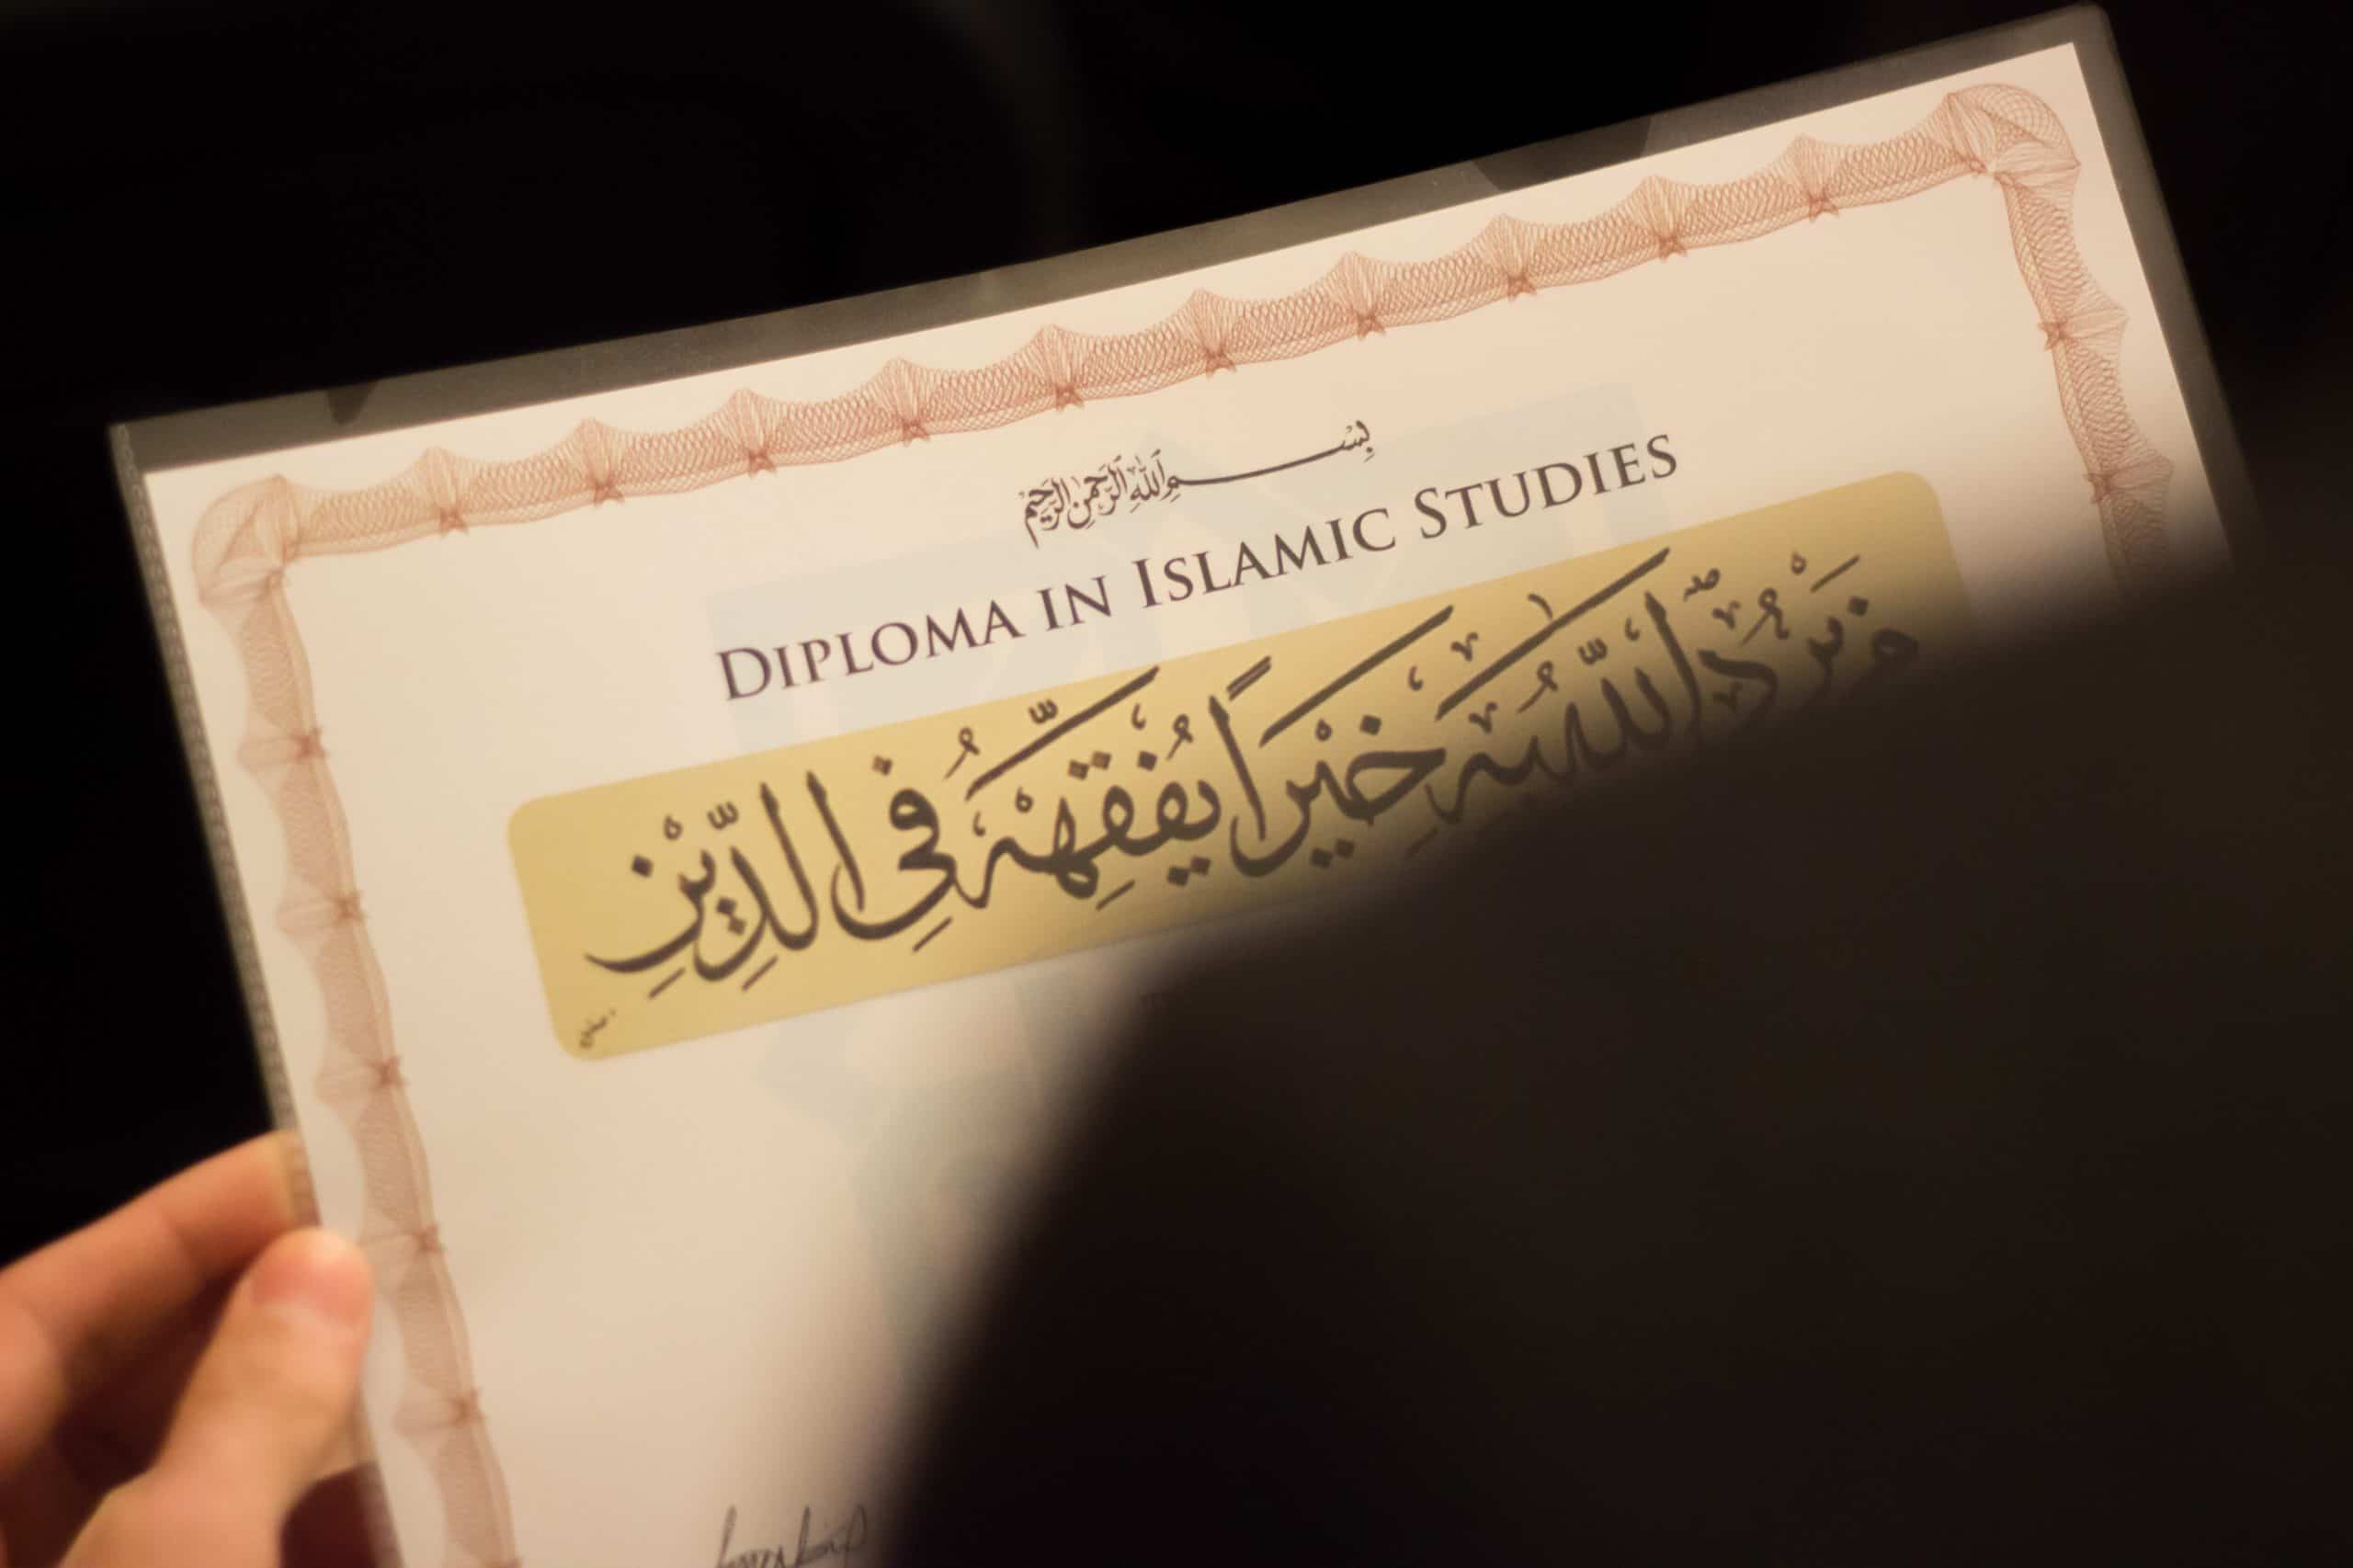 بِسْمِ اللَّهِ الرَّحْمَنِ الرَّحِيمِ
Diploma in Islamic Studies
يُرِدِ اللَّهُ بِهِ خَيْرًا يُفَقِّهْهُ فِي الدِّينِ